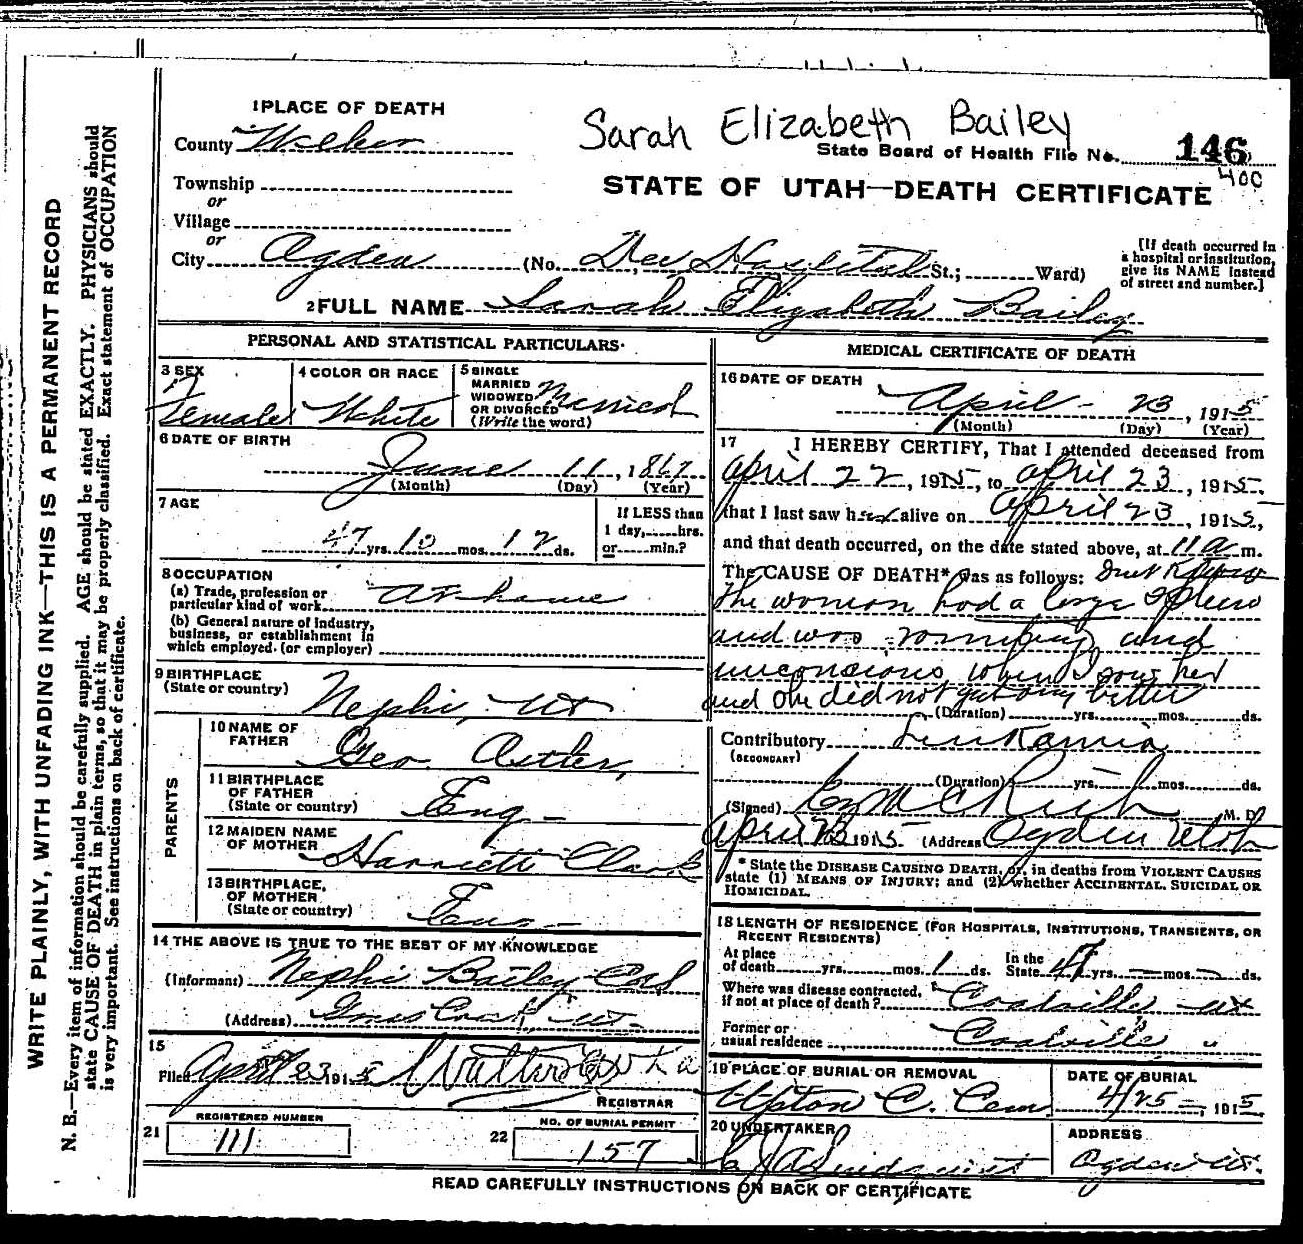 1 PLACE OF DEATH
Sarah Elizabeth Bailey
County Weber
State Board of Health File No. 146
400
Township
or
STATE OF UTAH—DEATH CERTIFICATE
Village
or
City Ogden (No. Dee Hospital St.; Ward)
[If death occurred in a hospital or institution, give its NAME instead of street and number.]
2 FULL NAME Sarah Elizabeth Bailey
PERSONAL AND STATISTICAL PARTICULARS
3 SEX
Female
4 COLOR OR RACE
White
5 SINGLE
MARRIED
WIDOWED
OR DIVORCED
(Write the word)
Married
6 DATE OF BIRTH
June 11, 1867
(Month) (Day) (Year)
7 AGE
47 yrs. 10 mos. 12 ds.
If LESS than
1 day, hrs.
or min.?
8 OCCUPATION
(a) Trade, profession or
particular kind of work At home
(b) General nature of industry,
business, or establishment in
which employed (or employer)
9 BIRTHPLACE
(State or country) Nephi, Ut
PARENTS
10 NAME OF
FATHER Geo.
11 BIRTHPLACE
OF FATHER
(State or country) Eng
12 MAIDEN NAME
OF MOTHER Harriett Clark
13 BIRTHPLACE
OF MOTHER
(State or country) Eng
14 THE ABOVE IS TRUE TO THE BEST OF MY KNOWLEDGE
(Informant) Nephi Bailey
(Address) Ut
15
Filed April 23 1915
REGISTRAR
REGISTERED NUMBER
21 111
NO. OF BURIAL PERMIT
22 157
MEDICAL CERTIFICATE OF DEATH
16 DATE OF DEATH
April 23, 1915
(Month) (Day) (Year)
17 I HEREBY CERTIFY, That I attended deceased from
April 22, 1915, to April 23, 1915,
that I last saw her alive on April 23, 1915,
and that death occurred, on the date stated above, at 11 a m.
The CAUSE OF DEATH* was as follows: Dont Know
The woman had a large Spleen
and was vomiting and
unconscious when I saw her
and she did not get any better
(Duration) yrs. mos. ds.
Contributory Leukamia
(SECONDARY)
(Duration) yrs. mos. ds.
(Signed) Rich M. D.
April 23 1915 (Address) Ogden Utah
* State the DISEASE CAUSING DEATH, or, in deaths from VIOLENT CAUSES
state (1) MEANS OF INJURY; and (2) whether ACCIDENTAL, SUICIDAL OR
HOMICIDAL.
18 LENGTH OF RESIDENCE (FOR HOSPITALS, INSTITUTIONS, TRANSIENTS, OR
RECENT RESIDENTS)
At place
of death yrs. mos. 1 ds.
In the
State 47 yrs. — mos. — ds.
Where was disease contracted,
if not at place of death? Coalville Ut
Former or
usual residence Coalville, "
19 PLACE OF BURIAL OR REMOVAL
Upton C. Cem.
DATE OF BURIAL
4/25, 1915
20 UNDERTAKER
Lindquist
ADDRESS
Ogden Ut.
READ CAREFULLY INSTRUCTIONS ON BACK OF CERTIFICATE
WRITE PLAINLY, WITH UNFADING INK—THIS IS A PERMANENT RECORD
N. B.—Every item of information should be carefully supplied. AGE should be stated EXACTLY. PHYSICIANS should
state CAUSE OF DEATH in plain terms, so that it may be properly classified. Exact statement of OCCUPATION
is very important. See instructions on back of certificate.